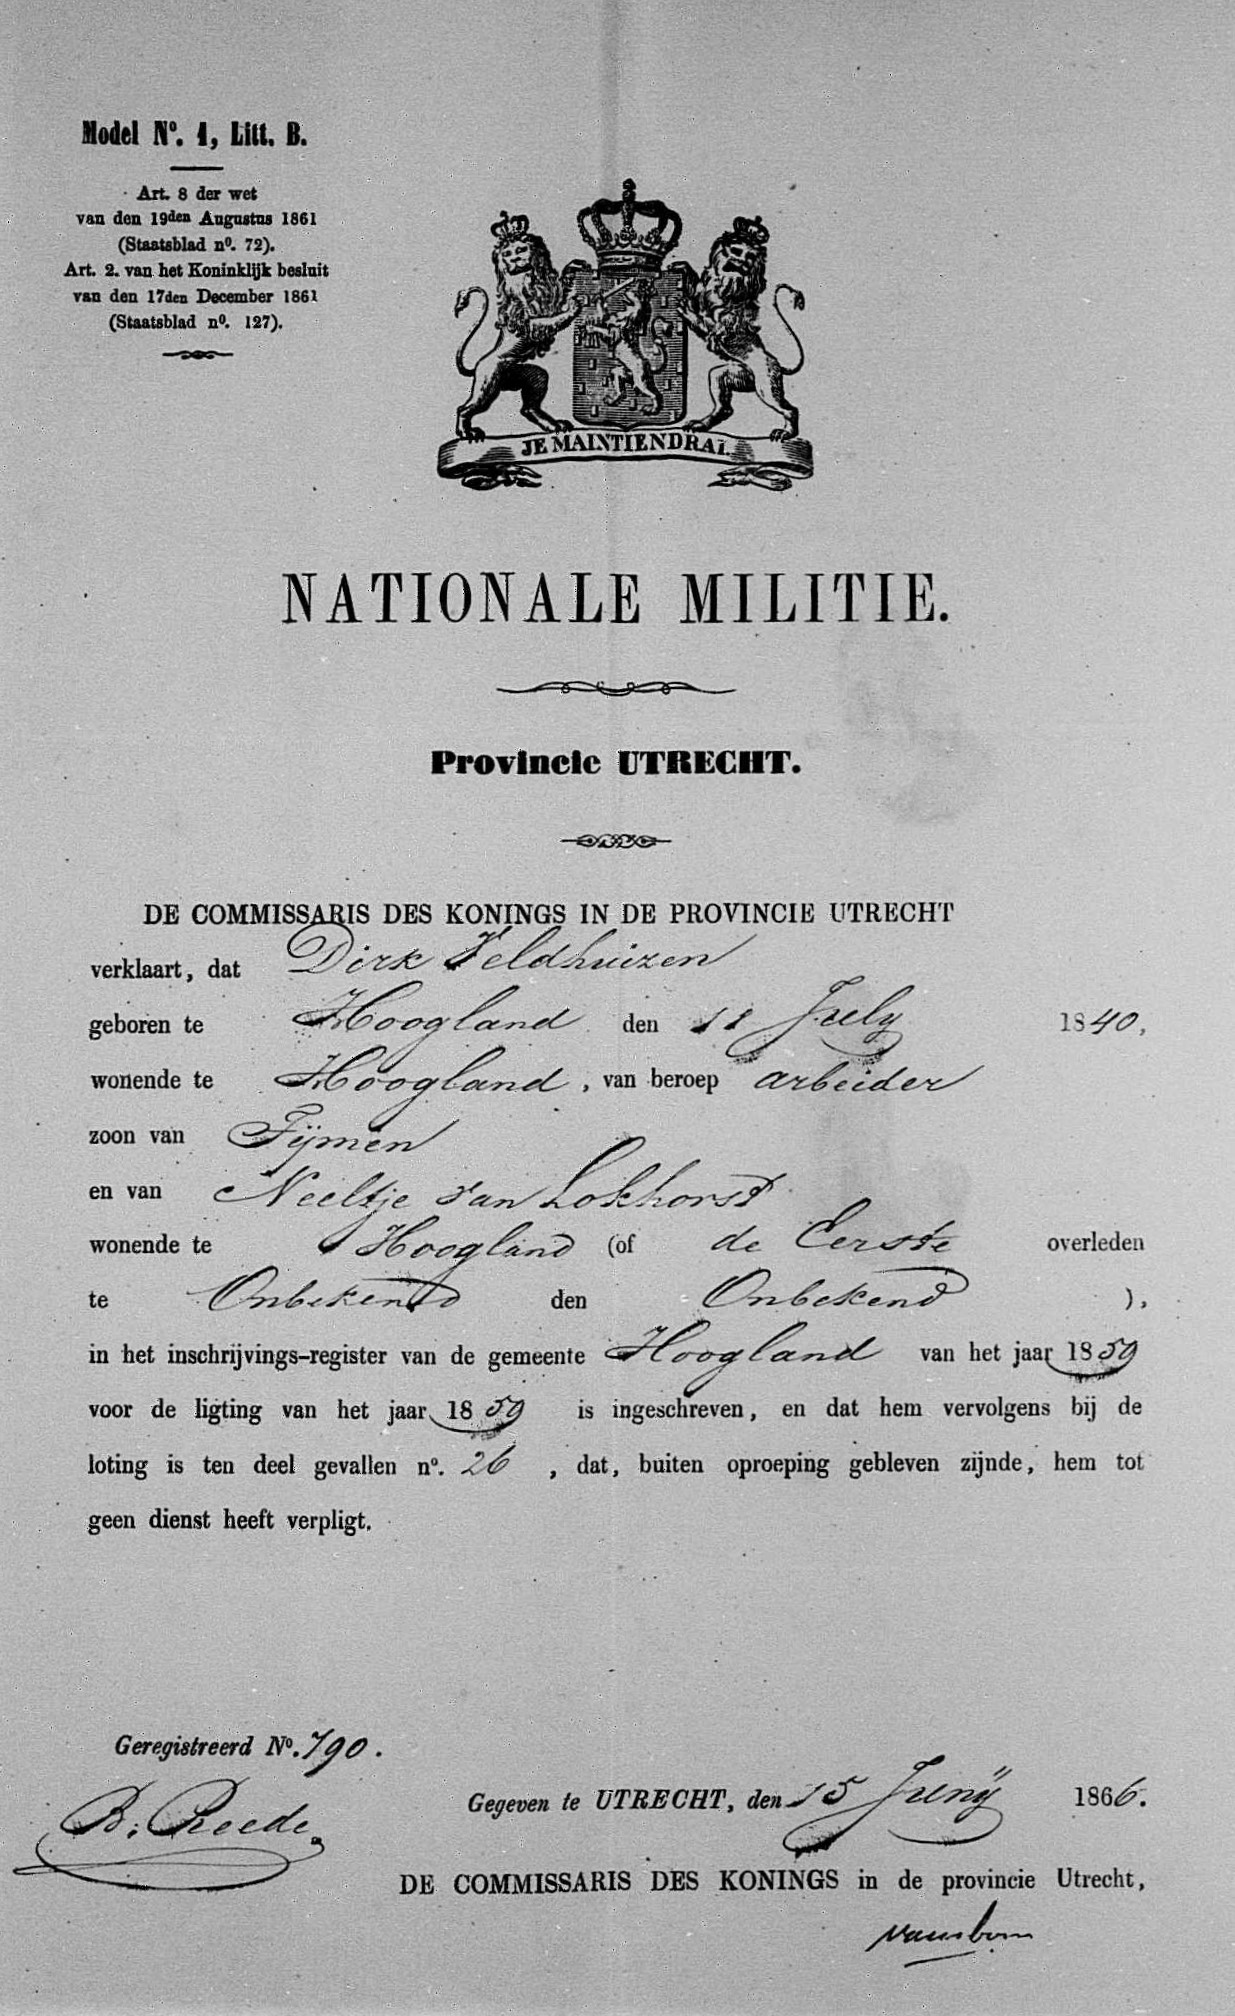 Model No. 1, Litt. B.
Art. 8 der wet
van den 19den Augustus 1861
(Staatsblad no. 72).
Art. 2. van het Koninklijk besluit
van den 17den December 1861
(Staatsblad no. 127).
JE MAINTIENDRAI.
NATIONALE MILITIE.
Provincie UTRECHT.
DE COMMISSARIS DES KONINGS IN DE PROVINCIE UTRECHT
verklaart, dat Dirk Veldhuizen
geboren te Hoogland den 11 July 1840,
wonende te Hoogland, van beroep arbeider
zoon van Tijmen
en van Neeltje van Lokhorst
wonende te Hoogland (of de Eerste overleden
te Onbekend den Onbekend ),
in het inschrijvings-register van de gemeente Hoogland van het jaar 1859
voor de ligting van het jaar 1859 is ingeschreven, en dat hem vervolgens bij de
loting is ten deel gevallen no. 26, dat, buiten oproeping gebleven zijnde, hem tot
geen dienst heeft verpligt.
Geregistreerd No. 790.
B. Reede
Gegeven te UTRECHT, den 15 Junÿ 1866.
DE COMMISSARIS DES KONINGS in de provincie Utrecht,